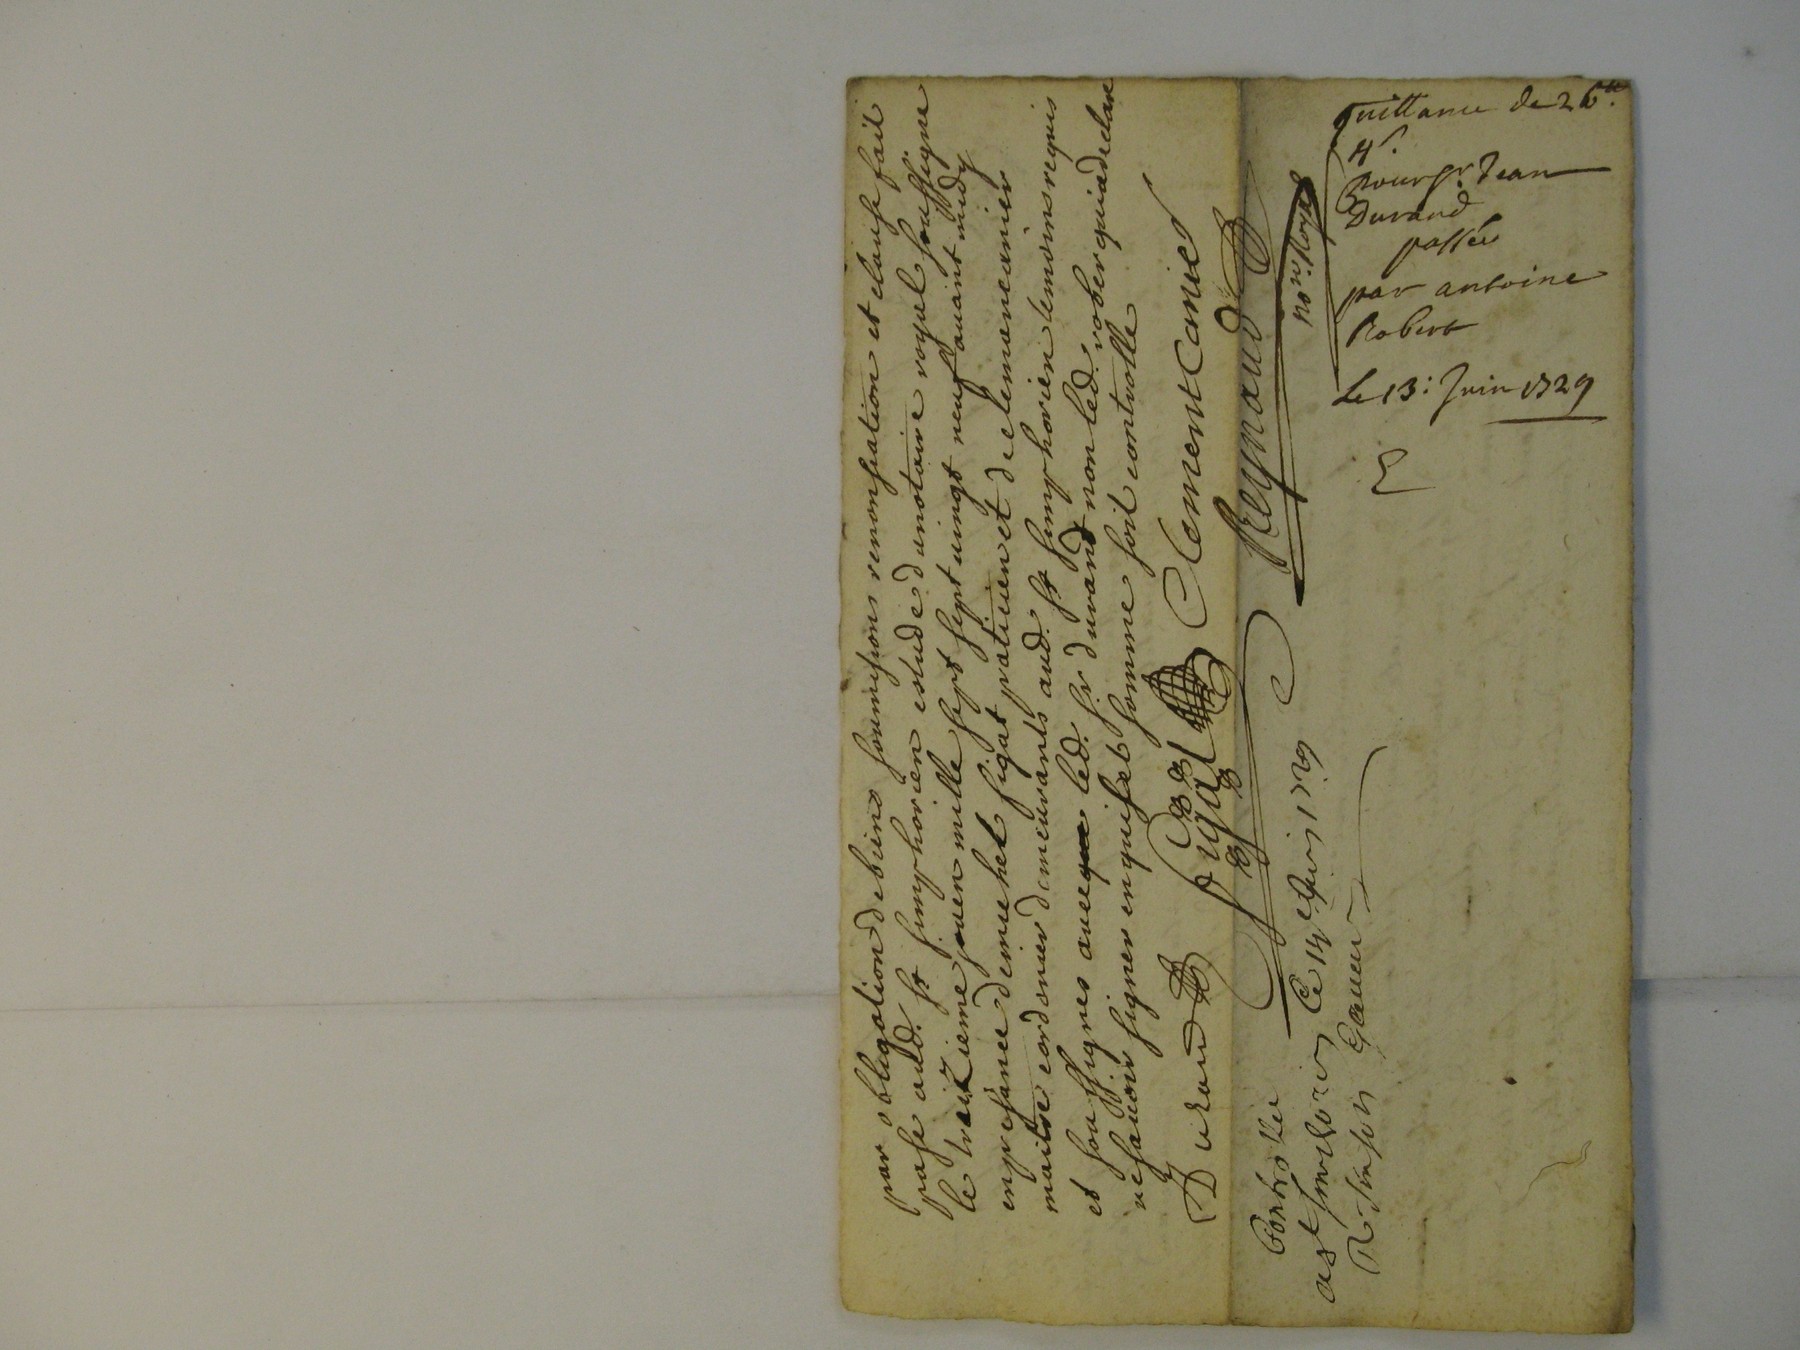 par obligation de biens soumisions renonsiation et clause fait
pasé aud. st simphorien estude d unotaire royal soussigne
le traizieme juen mille sept sept uingt neuf auant midy
en presance de michel sigat praticien et de clemant canier
maitre cordonier demeurants aud. st simphorien temoins requis
et soussignes auec led. sr durand non led. rober qui a declare
ne sauoir signer enquis et somme soit controlle
Durand Sugat Clement Canier
Reynaud
no.re Royal
Controllé
a st simforien Ce 14e juin 1729
R sinq sols
quittance de 26 tt
4 s.
pour sr. Jean
Durand
passée
par antoine
Robert
Le 13: Juin 1729